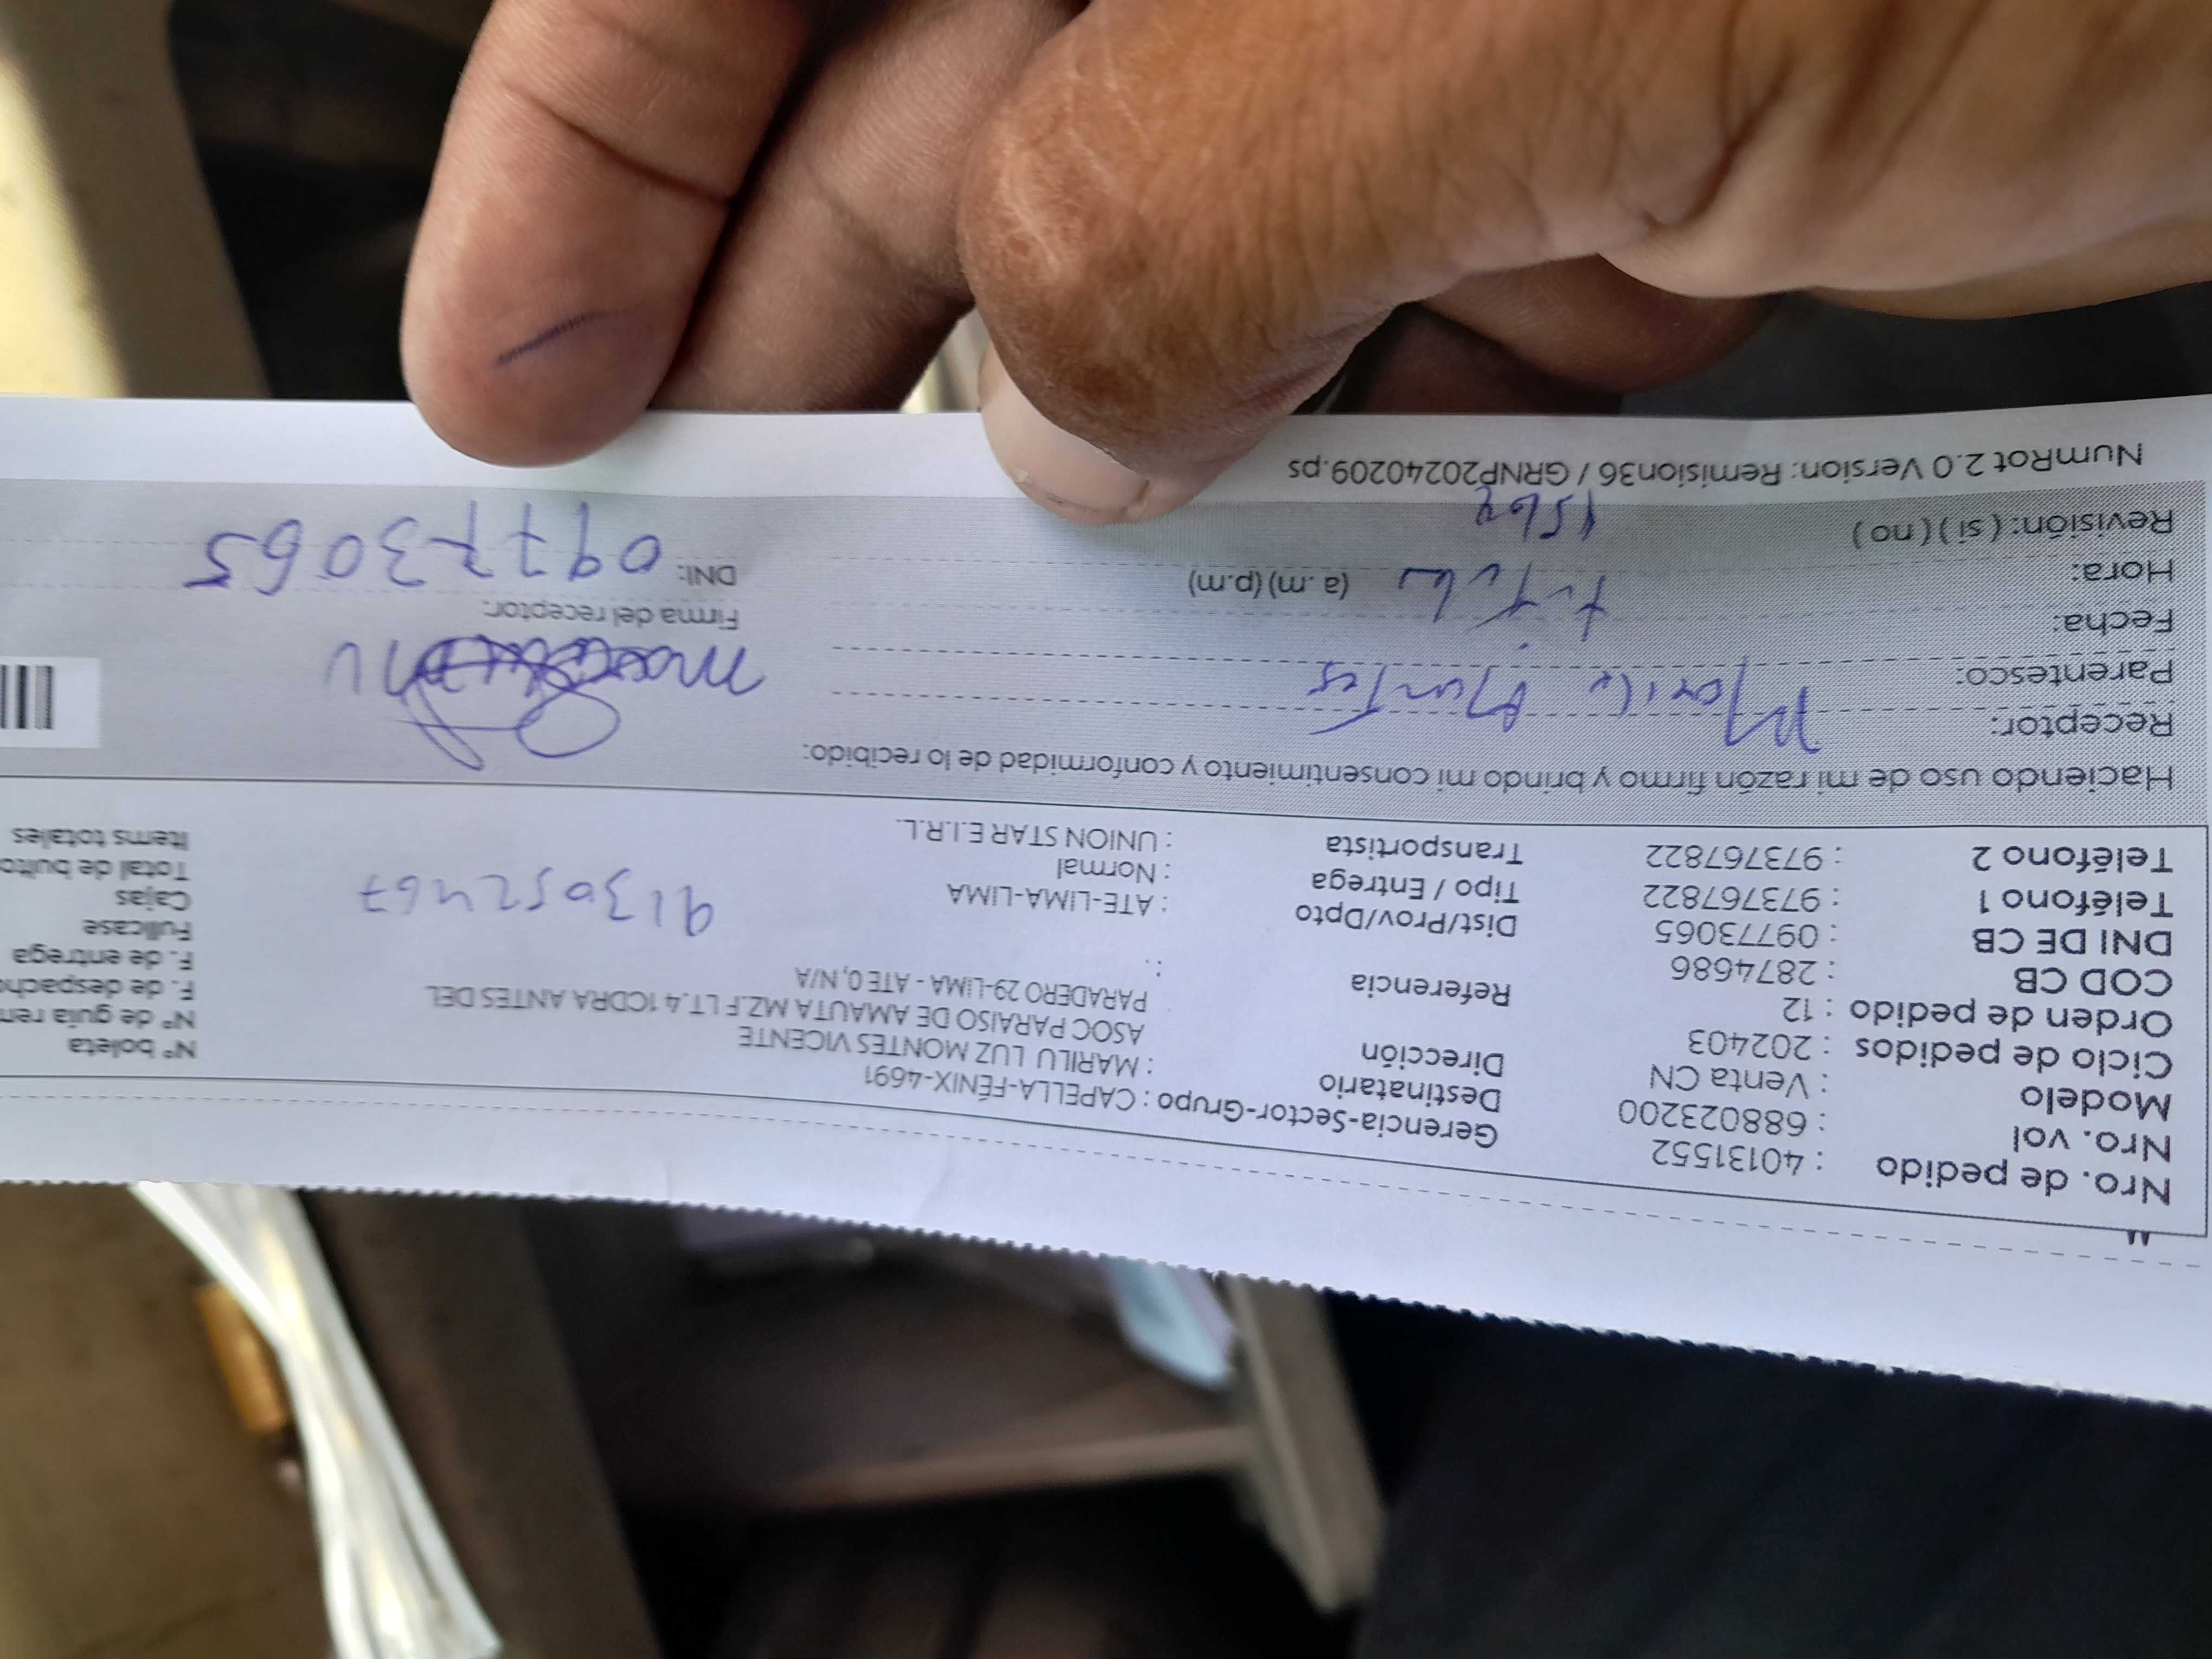 Nro. de pedido : 40131552
Nro. vol : 688023200
Modelo : Venta CN
Ciclo de pedidos : 202403
Orden de pedido : 12
COD CB : 2874686
DNI DE CB : 09773065
Teléfono 1 : 973767822
Teléfono 2 : 973767822
Gerencia-Sector-Grupo : CAPELLA-FÉNIX-4691
Destinatario : MARILU LUZ MONTES VICENTE
Dirección ASOC PARAISO DE AMAUTA MZ.F LT.4 1CDRA ANTES DEL
PARADERO 29-LIMA - ATE 0, N/A
Referencia :
Dist/Prov/Dpto : ATE-LIMA-LIMA
Tipo / Entrega : Normal
Transportista : UNION STAR E.I.R.L.
913052467
N° boleta
N° de guía rem
F. de despacho
F. de entrega
Fullcase
Cajas
Total de bulto
Items totales
Haciendo uso de mi razón firmo y brindo mi consentimiento y conformidad de lo recibido:
Receptor:
Parentesco:
Fecha:
Hora: (a. m) (p.m)
Revisión: ( si ) ( no )
Firma del receptor:
DNI: 09773065
NumRot 2.0 Version: Remision36 / GRNP20240209.ps